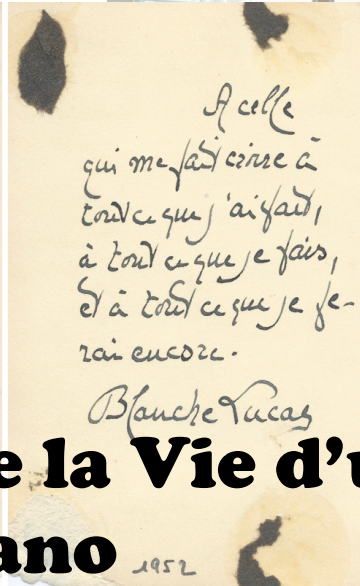 A celle
qui me fait croire à
tout ce que j'ai fait,
à tout ce que je fais,
et à tout ce que je fe-
rai encore.
Blanche Lucas
e la Vie d'u
ano
1952